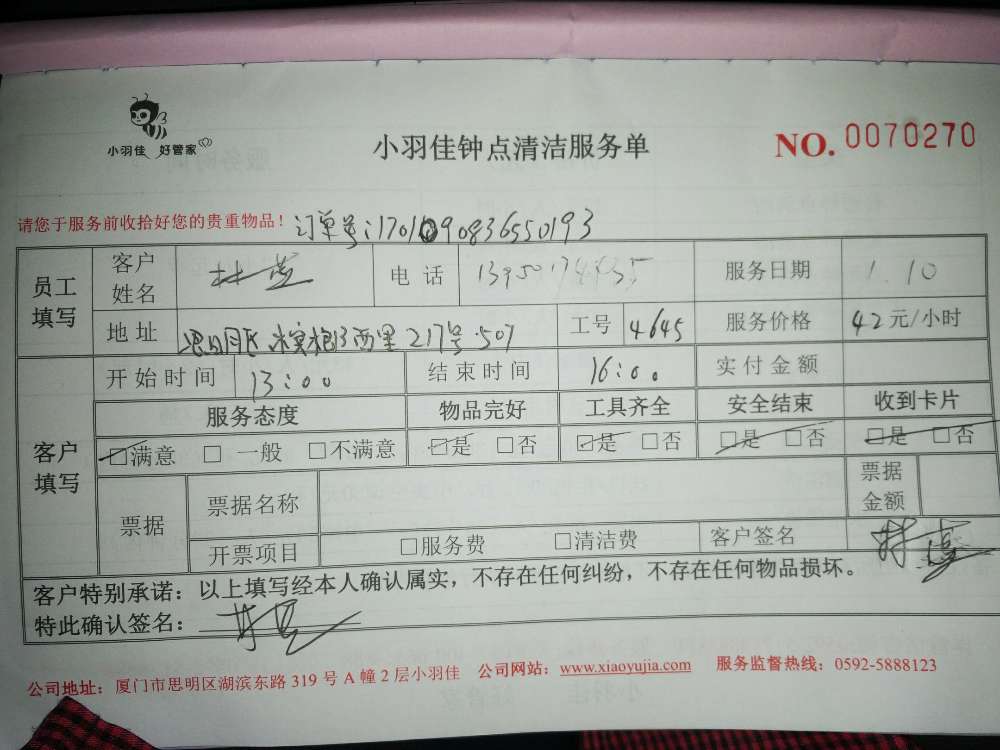 小羽佳 好管家
小羽佳钟点清洁服务单
NO. 0070270
请您于服务前收拾好您的贵重物品！ 订单号:1701090836550193
员工填写 客户姓名 林 电话 服务日期 1.10
地址 思明区 西里217号.507 工号 4645 服务价格 42元/小时
客户填写 开始时间 13:00 结束时间 16:00 实付金额
服务态度 物品完好 工具齐全 安全结束 收到卡片
☑满意 □一般 □不满意 ☑是 □否 ☑是 □否 ☑是 □否 ☑是 □否
票据 票据名称 票据金额
开票项目 □服务费 □清洁费 客户签名 林
客户特别承诺：以上填写经本人确认属实，不存在任何纠纷，不存在任何物品损坏。
特此确认签名： 林
公司地址：厦门市思明区湖滨东路 319 号 A 幢 2 层小羽佳 公司网站：www.xiaoyujia.com 服务监督热线：0592-5888123